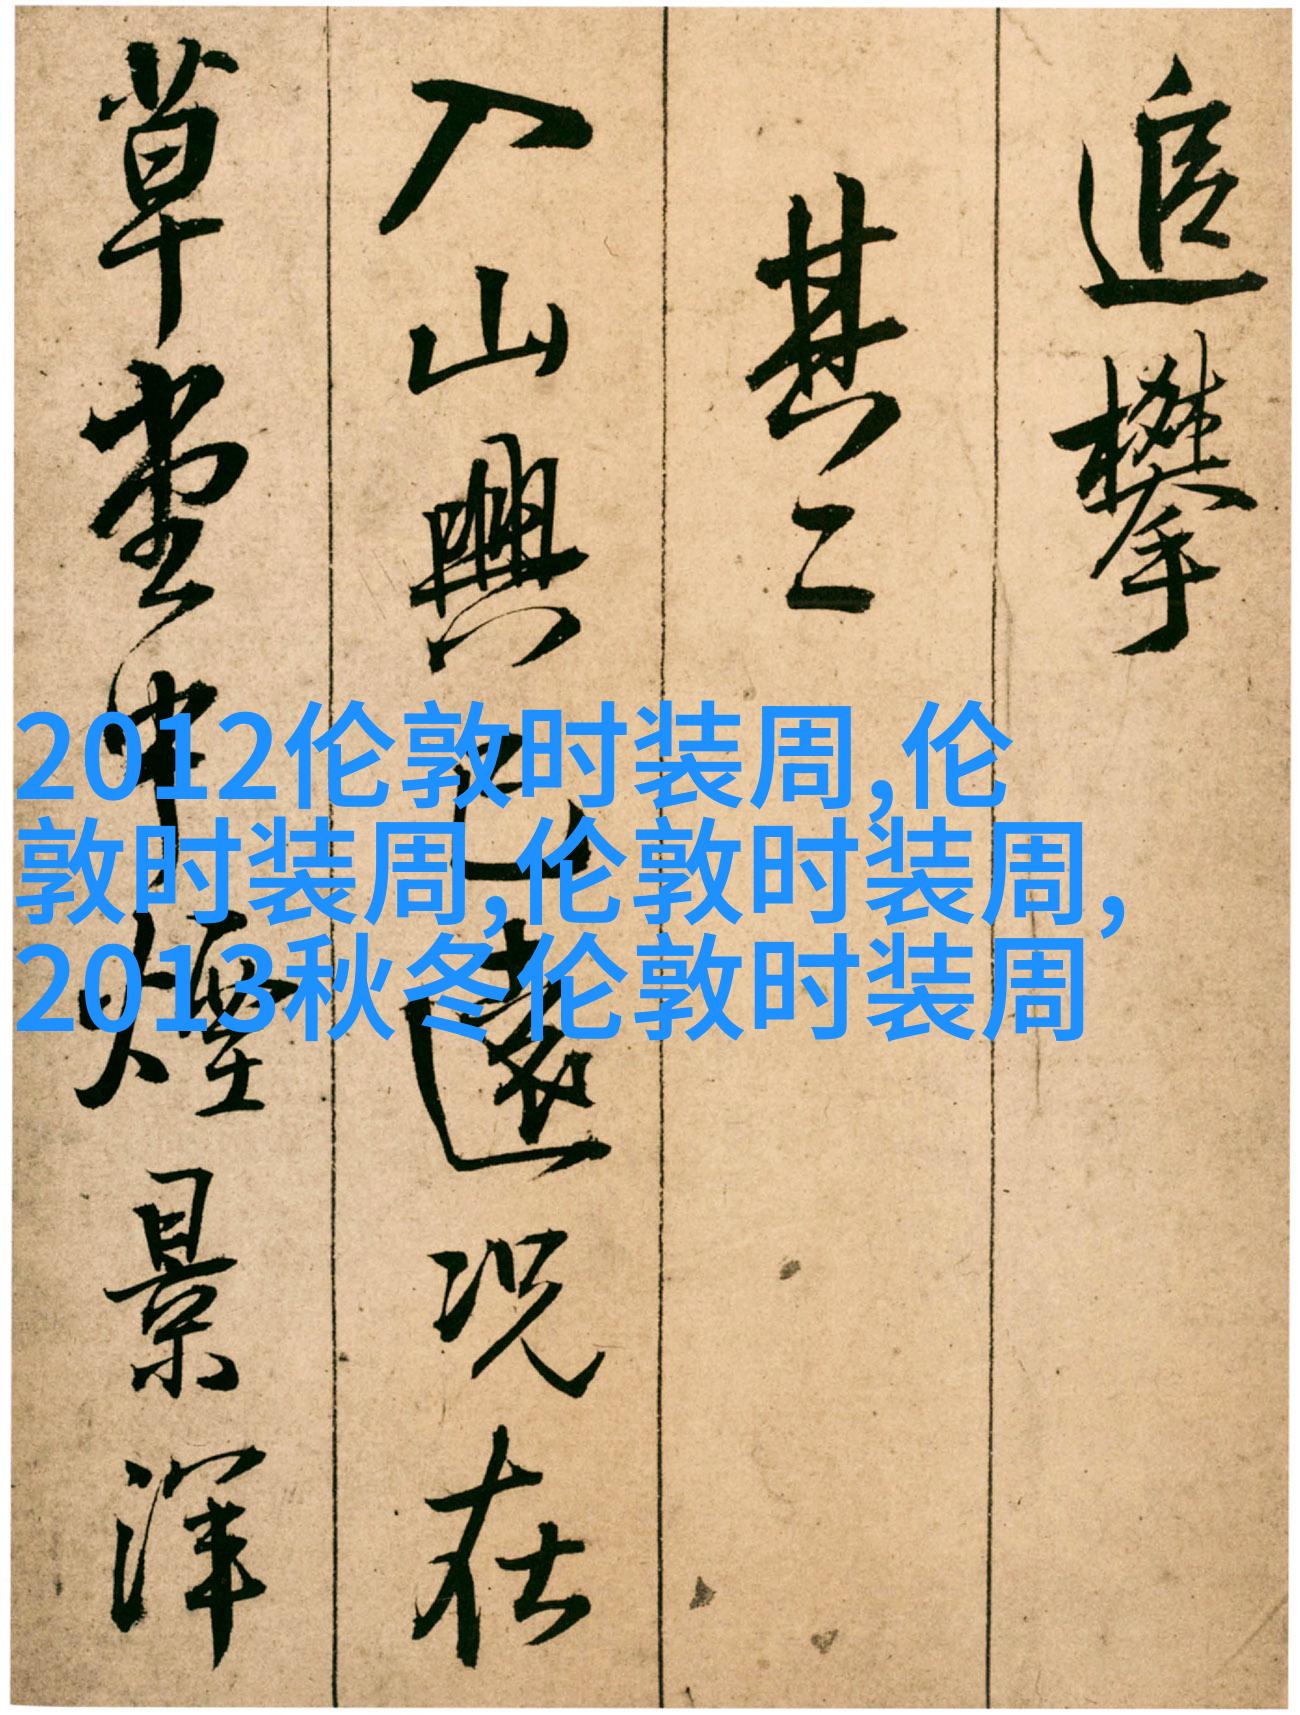 追攀
其二
入山興已遠況在
草堂中煙景渾
2012伦敦时装周,伦
敦时装周,伦敦时装周,
2013秋冬伦敦时装周